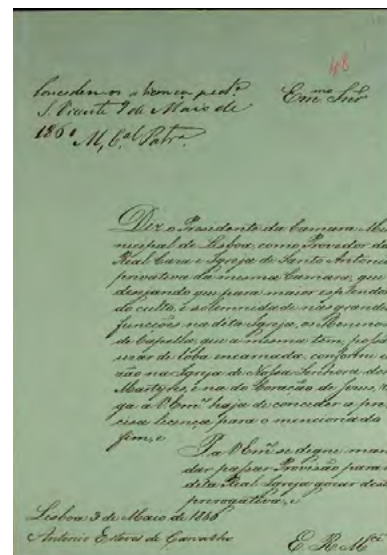 48
Concedemos a licença ped.ª
S. Vicente 9 de Maio de
186
M, C.al Patr.ª
Em.mo Snr
Diz o Presidente da Camara Mu
nicipal de Lisboa, como Provedor da
Real Caza e Igreja de Santo Antonio
privativa da mesma Camara, que
desejando que para maior esplendor
do culto, e solemnidade nas grandes
funcções na dita Igreja, os Meninos
de Capella, que a mesma tem, possa
uzar de loba encarnada, conforme o
zão na Igreja de Nossa Senhora dos
Martyres, e na do Coração de Jesus, r
ga a V. Em.ª haja de conceder a pre
cisa licença para o mencionado
fim, e
P. a V. Em.ª se digne man
dar passar Provisão para
dita Real Igreja gozar desta
prerogativa, e
Lisboa 3 de Maio de 1866
Antonio Esteves de Carvalho
E. R. M.ce